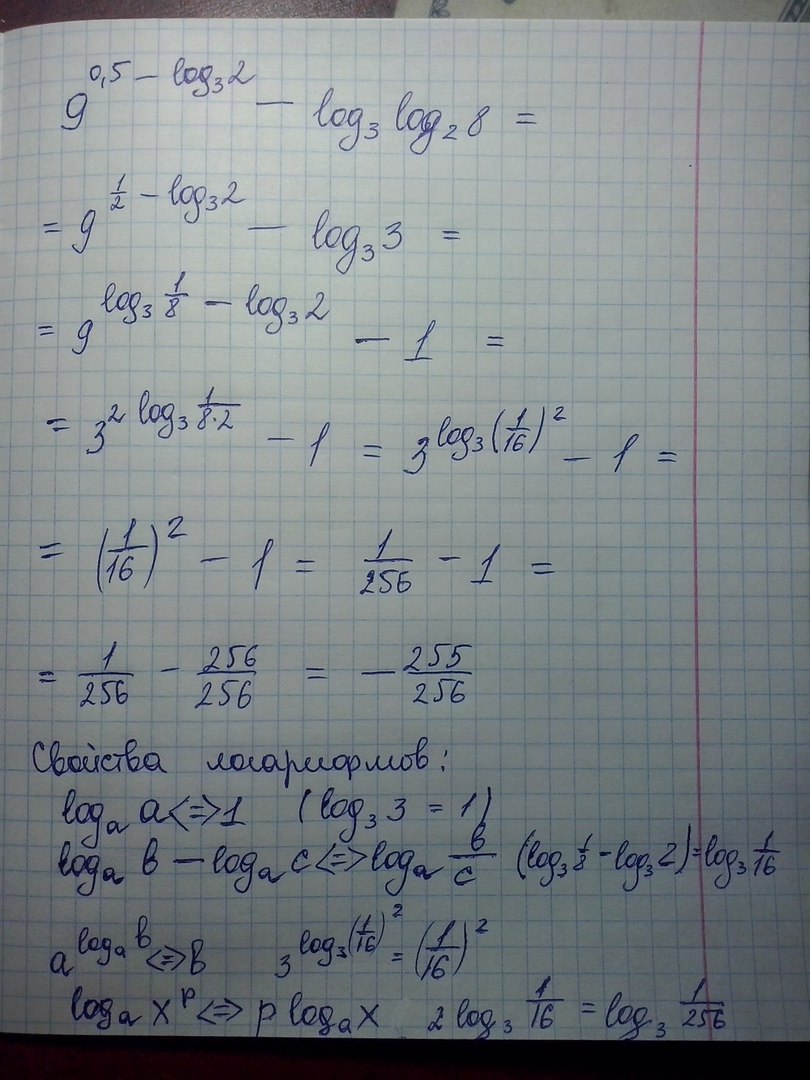 9^(0,5 − log₃2) − log₃ log₂ 8 =
= 9^(1/2 − log₃2) − log₃ 3 =
= 9^(log₃ 1/8 − log₃2) − 1 =
= 3^(2 log₃ 1/(8·2)) − 1 = 3^(log₃(1/16)²) − 1 =
= (1/16)² − 1 = 1/256 − 1 =
= 1/256 − 256/256 = − 255/256
Свойства логарифмов:
logₐ a <=> 1 (log₃ 3 = 1)
logₐ в − logₐ c <=> logₐ в/c (log₃ 1/8 − log₃ 2) = log₃ 1/16
a^(logₐ в) <=> в 3^(log₃(1/16)²) = (1/16)²
logₐ x^p <=> p logₐ x 2 log₃ 1/16 = log₃ 1/256